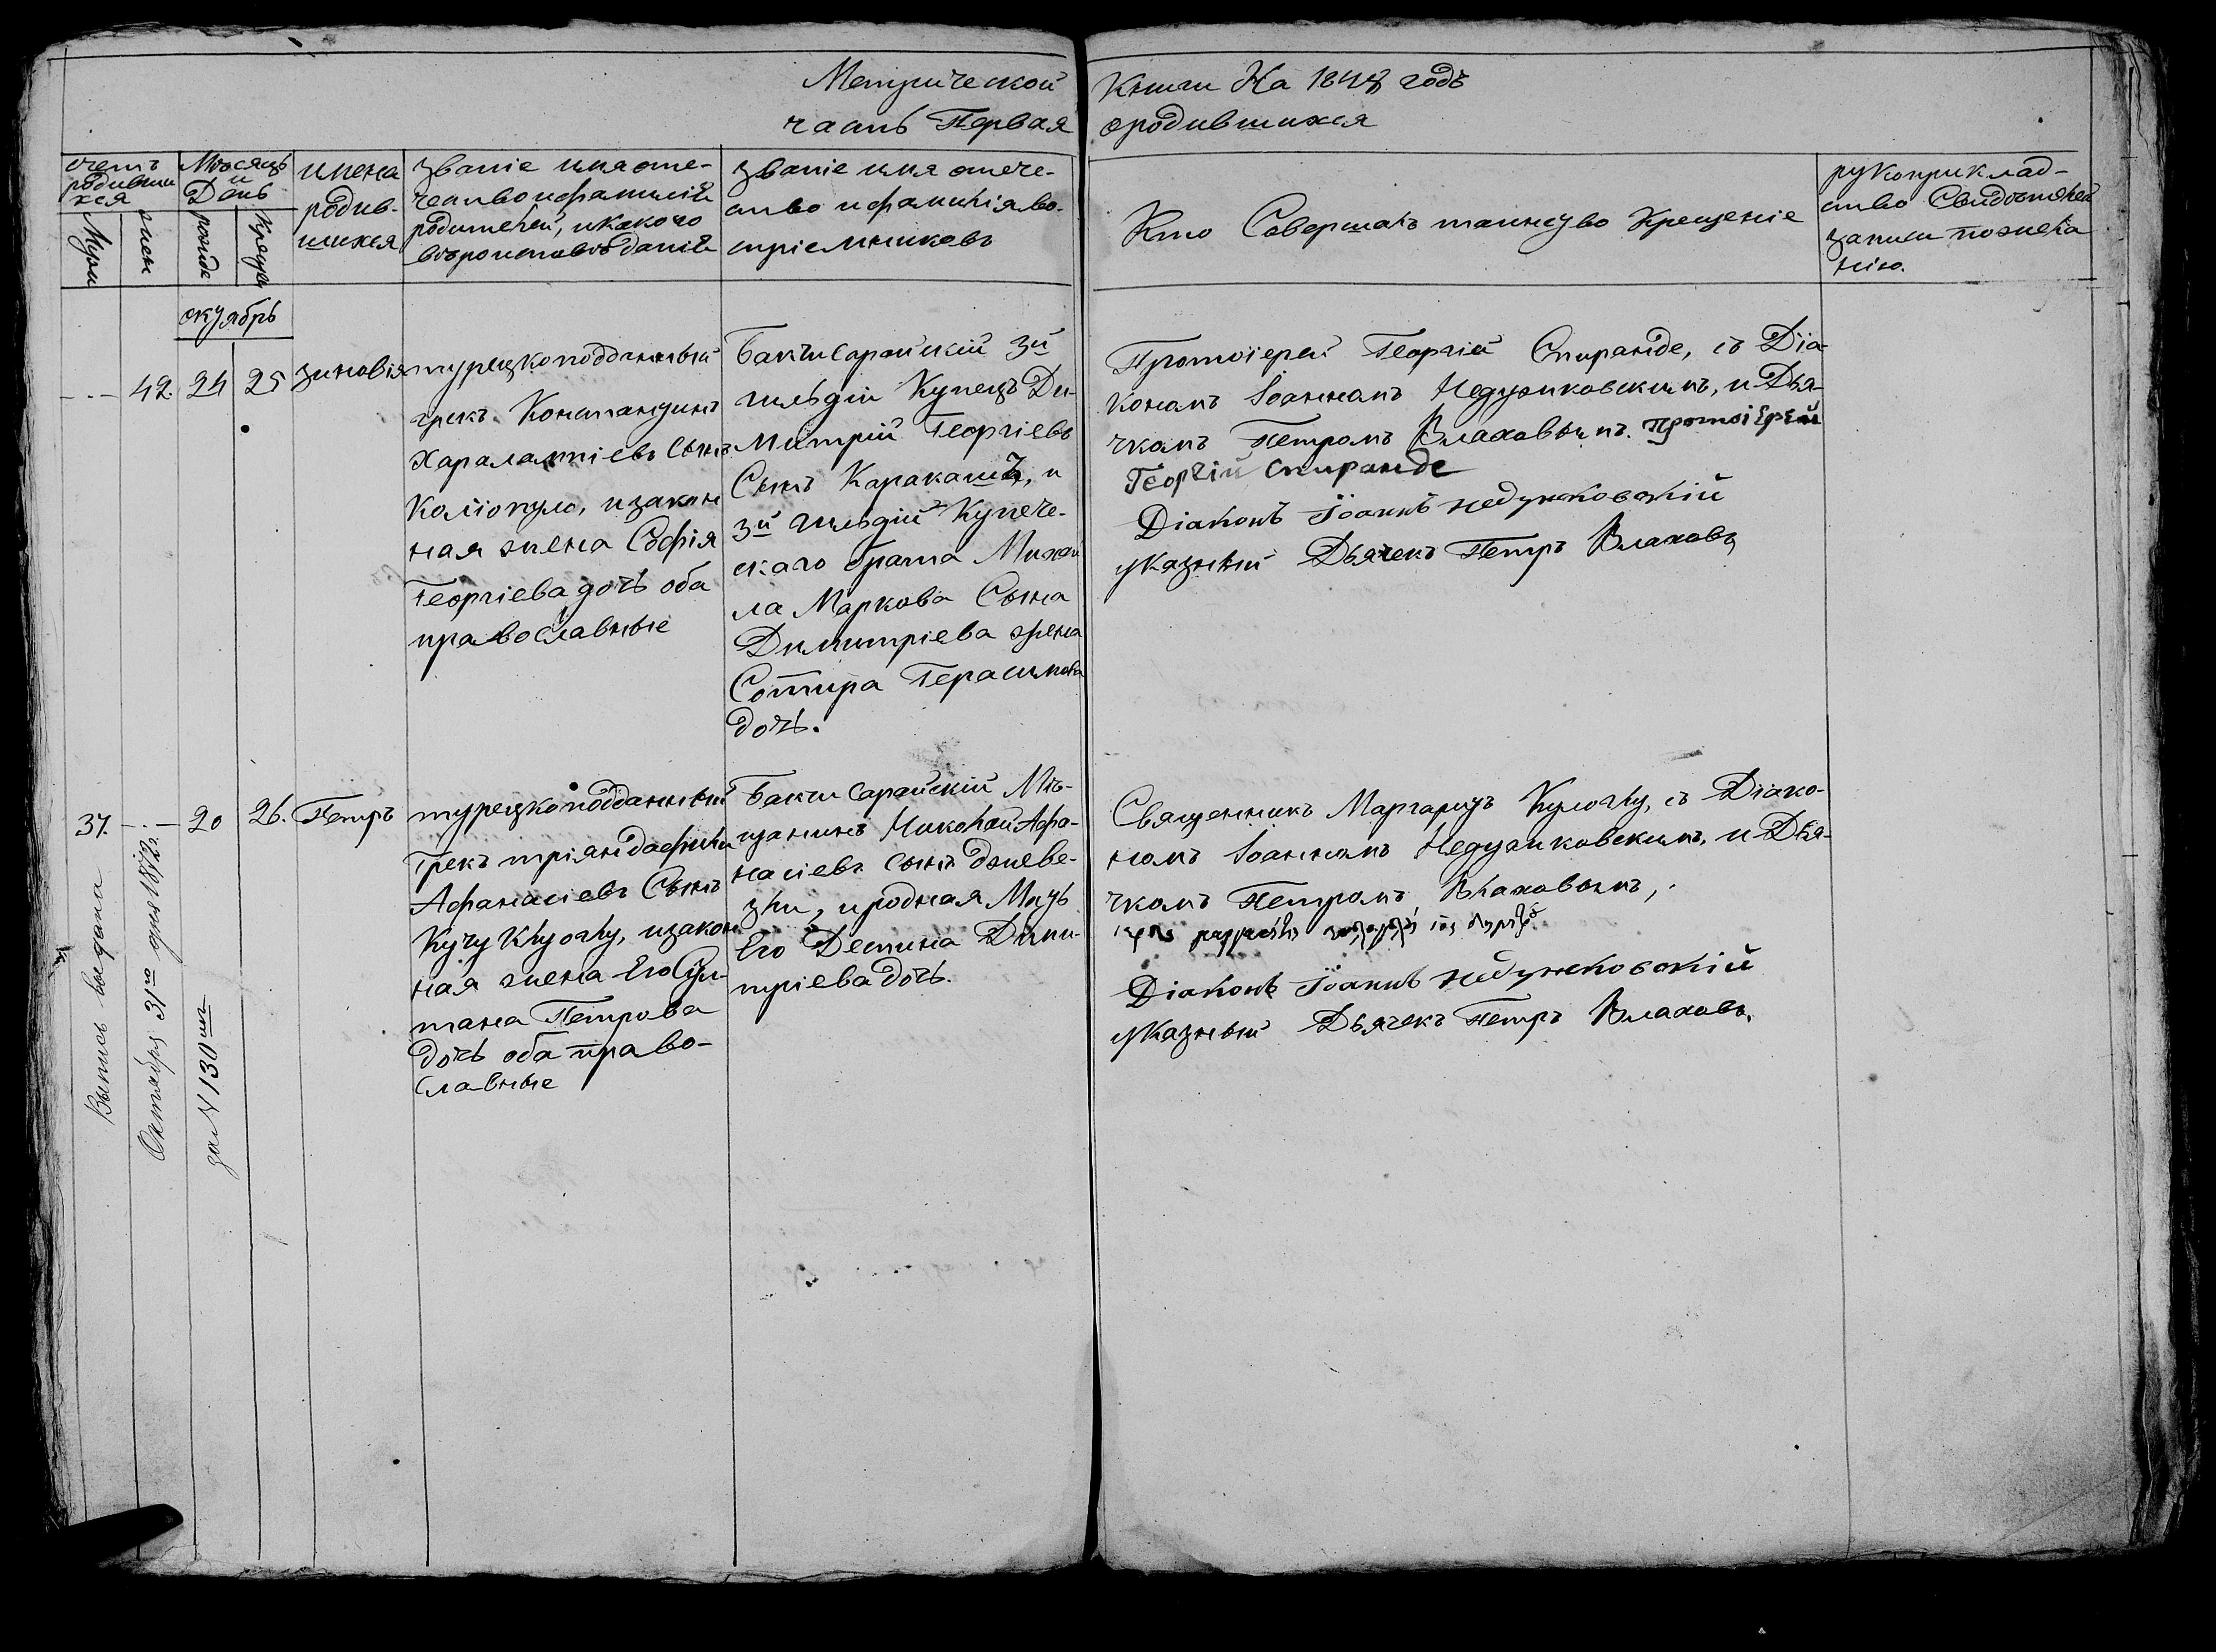 Метрической Книги На 1848 годъ
часть Первая о родившихся
счетъ
родивши
хся
Муж
жен
Мѣсяцъ
и
День
рожде
Креще
имена
родив-
шихся
званіе имя оте-
чество и фамилія
родителей, и какого
вѣроисповѣданія
званіе имя отече-
ство и фамилія во-
спріемниковъ
Кто Совершалъ таинство Крещеніе
рукоприклад-
ство Свидѣтелей
записи по жела
нію.
октябрь
42. 24 25 Зиновія
турецкоподданный
грекъ Константинъ
Харалампіевъ Сынъ
Каліопуло, и закон
ная жена Софія
Георгіева дочь оба
православные
Бакчисарайскій 3й
гильдіи Купецъ Ди-
митрій Георгіевъ
Сынъ Каракашъ, и
3й гильдіи Купече-
скаго брата Михаи
ла Маркова Сына
Димитріева жена
Сотира Герасимова
дочь.
Протоіерей Георгій Спиранде, съ Діа-
кономъ Іоанномъ Недзужковскимъ, и Дья-
чкомъ Петромъ Влаховымъ. Протоіерей
Георгій Спиранде
Діаконъ Іоаннъ
указный Дьячекъ Петръ Влаховъ
37. 20 26. Петръ
турецкоподданный
Грекъ тріандафилъ
Афанасіевъ Сынъ
и закон
ная жена Его Сул-
тана Петрова
дочь оба право-
славные
Бакчисарайскій Мѣ-
щанинъ Николай Афа-
насіевъ сынъ Джеве-
зли, и родная Мать
Его Деспина Дими-
тріева дочь.
Священникъ Маргаритъ съ Діако-
номъ Іоанномъ и Дья-
чкомъ Петромъ Влаховымъ,
Діаконъ Іоаннъ
указный Дьячекъ Петръ Влаховъ.
Выпись выдана
Октября 31го дня 1872г.
за N 130мъ